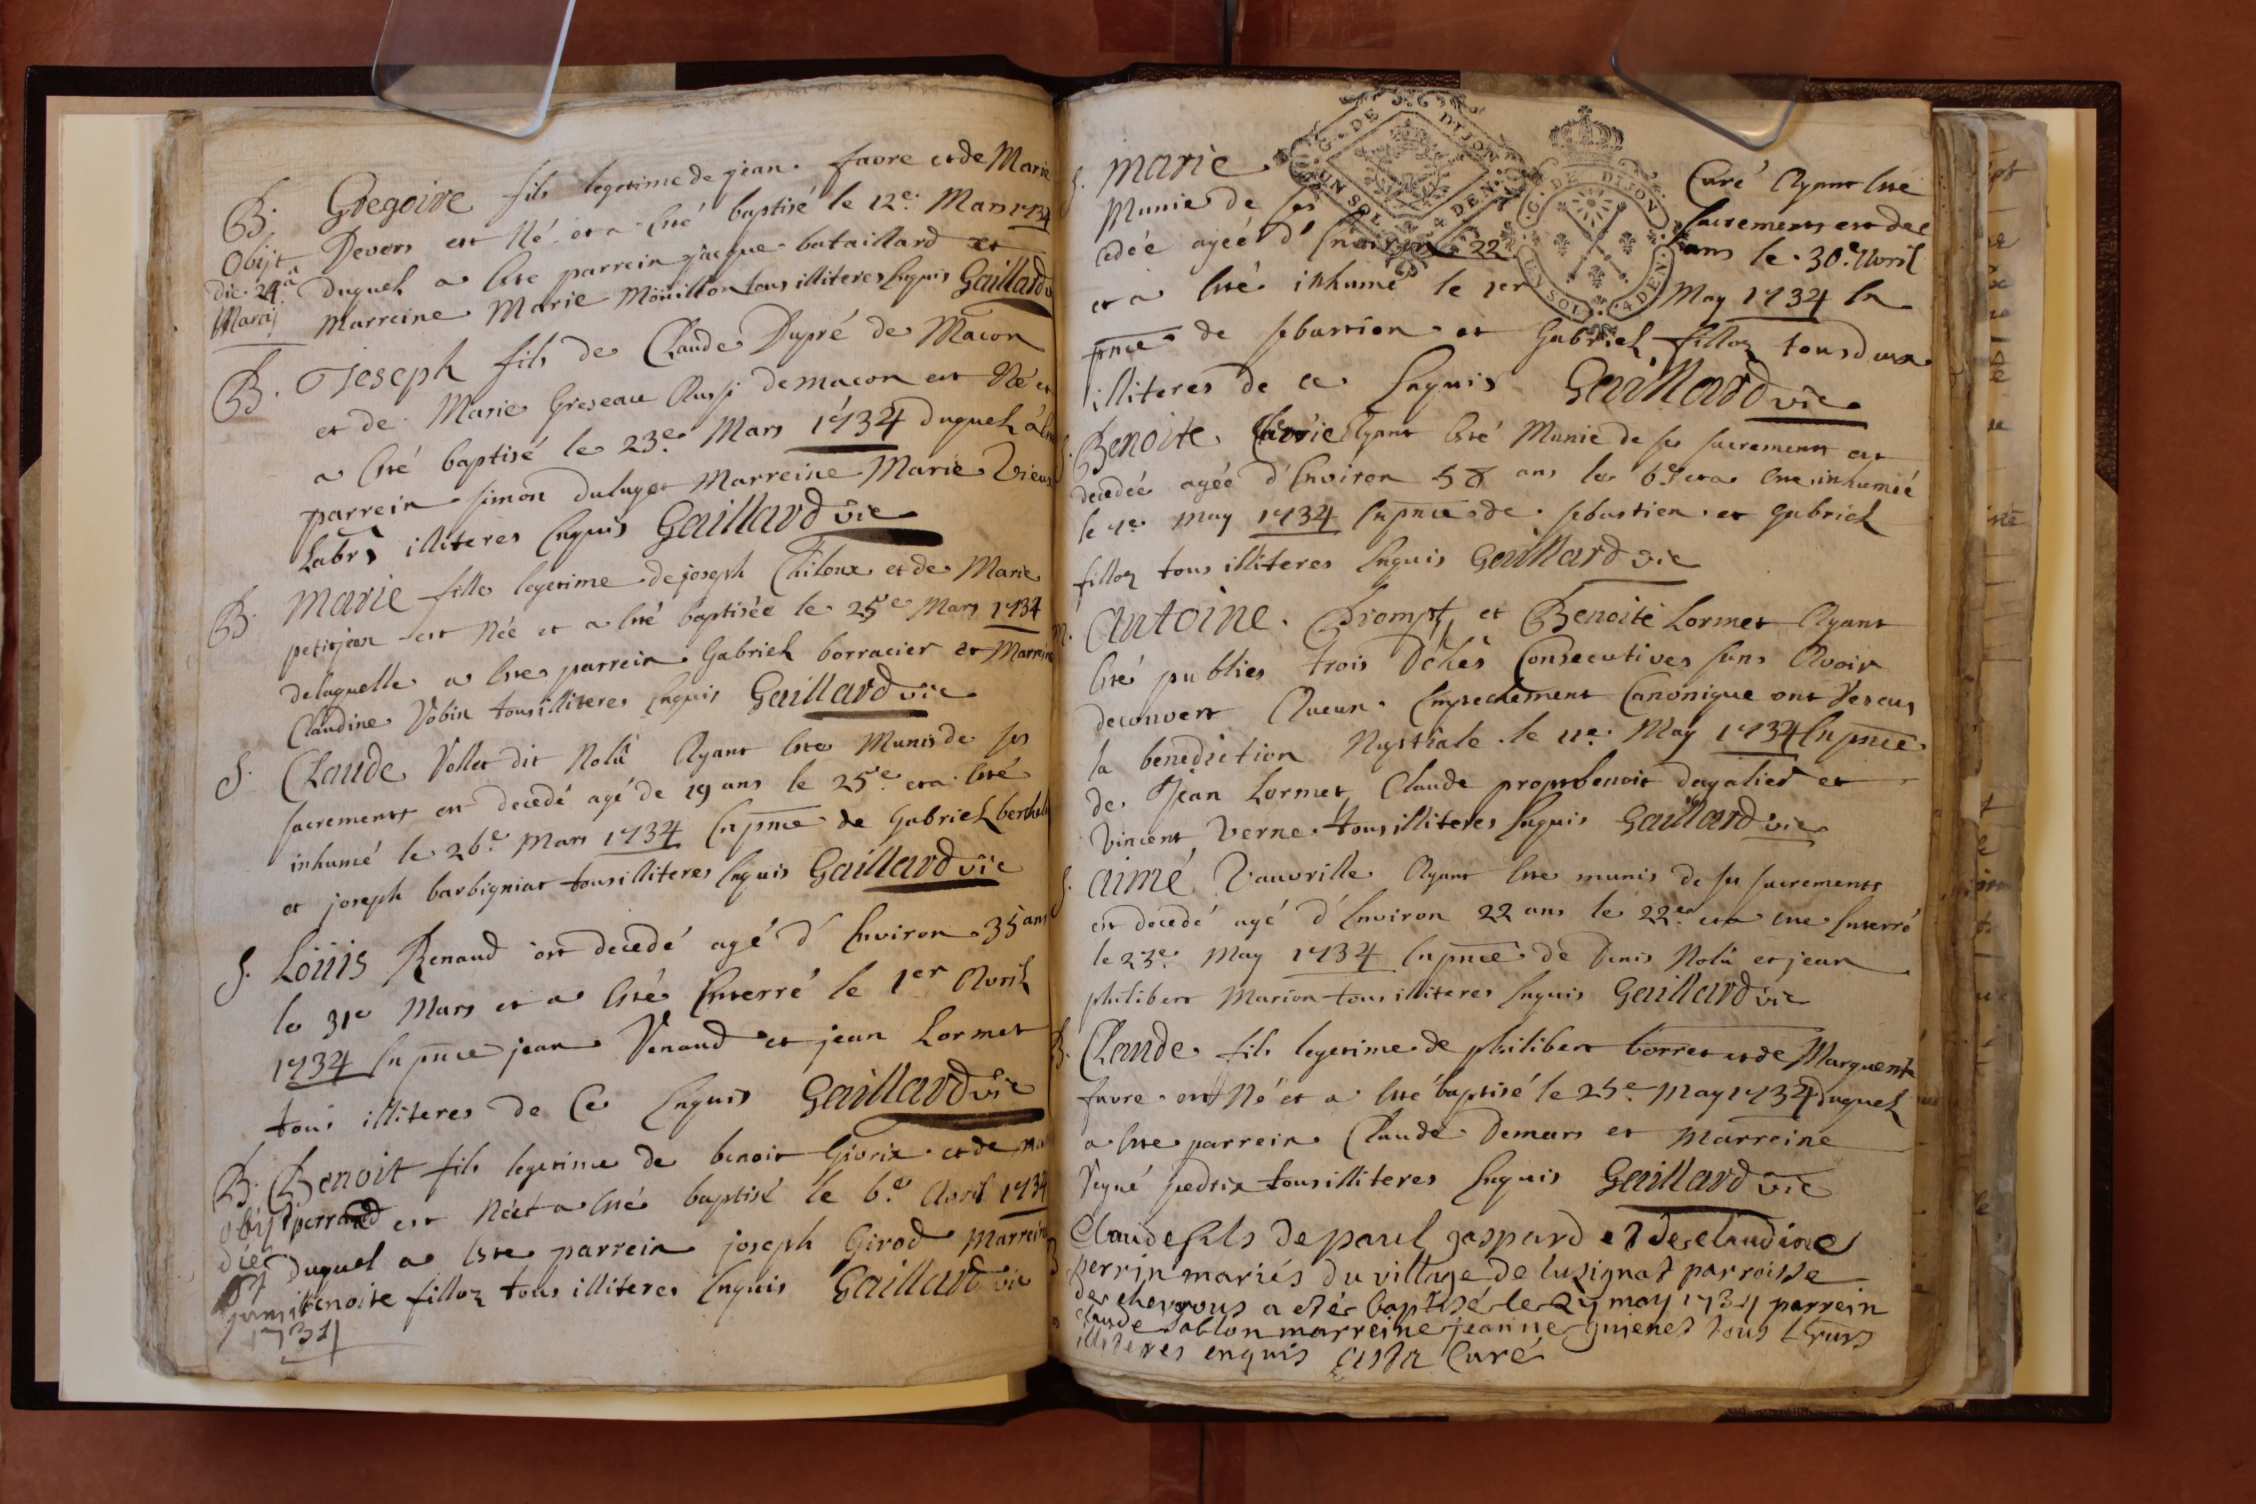 B. Gregoire fils legetime de jean favre et de Marie
Devers est Né et a esté baptisé le 12e Mars 1734
duquel a este parrein jacque bataillard et
marreine Marie Moüillon tous illiteres enquis Gaillard
Obijt
die 24a
Marcij
B. Joseph fils de Claude Dupré de Macon
et de Marie Greseau Aussi de macon est Né et
a esté baptisé le 23e Mars 1734 duquel à
parrein simon duluget Marreine Marie Vieux
Labrÿ illiteres enquis Gaillard vic
B. Marie fille legetime de joseph Chiloux et de Marie
petitjean est Née et a esté baptisée le 25e Mars 1734
delaquelle a este parrein Gabriel borracier et Marreine
Claudine Vobin tous illiteres enquis Gaillard vic
S. Claude Vollet dit Nolû Ayant este Munis de ses
sacrements est decedé agé de 19 ans le 25e et a esté
inhumé le 26e Mars 1734 En pnce de Gabriel
et joseph barbigniat tous illiteres enquis Gaillard vic
S. Loüis Renaud est decedé agé d'Environ 35 ans
le 31e Mars et a esté Enterré le 1er Avril
1734 En pnce jean Venaud et jean Lormet
tous illiteres de Ce Enquis Gaillard vic
B. Benoit fils legetime de benoit Givrix et de
perraud est Né et a esté baptisé le 6e Avril 1734
Duquel a este parrein joseph Girod Marreine
benoite filloz tous illiteres Enquis Gaillard vic
Obijt
die
junij
1734
S. Marie Curé Ayant esté
Munie de ses sacrements est de
cedée agéé d'Environ 22 ans le 30e Avril
et a esté inhumé le 1er May 1734 En
pnce de sebastien et Gabriel filloz tous deux
illiteres de ce Enquis Gaillard vic
S. Benoite Ayant esté Munie de ses sacrements est
decedée agéé d'Environ ans le 6e et a este inhumée
le 7e May 1734 En pnce de sebastien et gabriel
filloz tous illiteres Enquis Gaillard vic
M. Antoine Prompt et Benoite Lormet Ayant
esté publies trois Dches Consecutives sans Avoir
decouvert Aucun Empechement Canonique ont Receus
la benediction Nuptiale le 11e May 1734 En pnce
de Jean Lormet Claude propt benoit dagalier et
Vincent Verne tous illiteres Enquis Gaillard vic
S. Aimé Vauvrille Ayant este munis de ses sacrements
est decedé agé d'Environ 22 ans le 22e et a este Enterré
le 23e May 1734 En pnce de Denis Nolû et jean
philibert Marion tous illiteres Enquis Gaillard vic
B. Claude fils legetime de philibert borret et de Marguerite
favre est Né et a esté baptisé le 25e May 1734 duquel
a este parrein Claude Demars et Marreine
Regné pedrix tous illiteres Enquis Gaillard vic
Claude fils de paul gaspard et de claudine
perrin mariés du village de lusignat parroisse
de chevrous a esté baptisé le 27 may 1734 parrein
claude sablon marreine jeanne guienet tous
illiteres enquis Curé
G. DE DIJON
UN SOL 4 DEN.
G. DE DIJON
UN SOL 4 DEN.